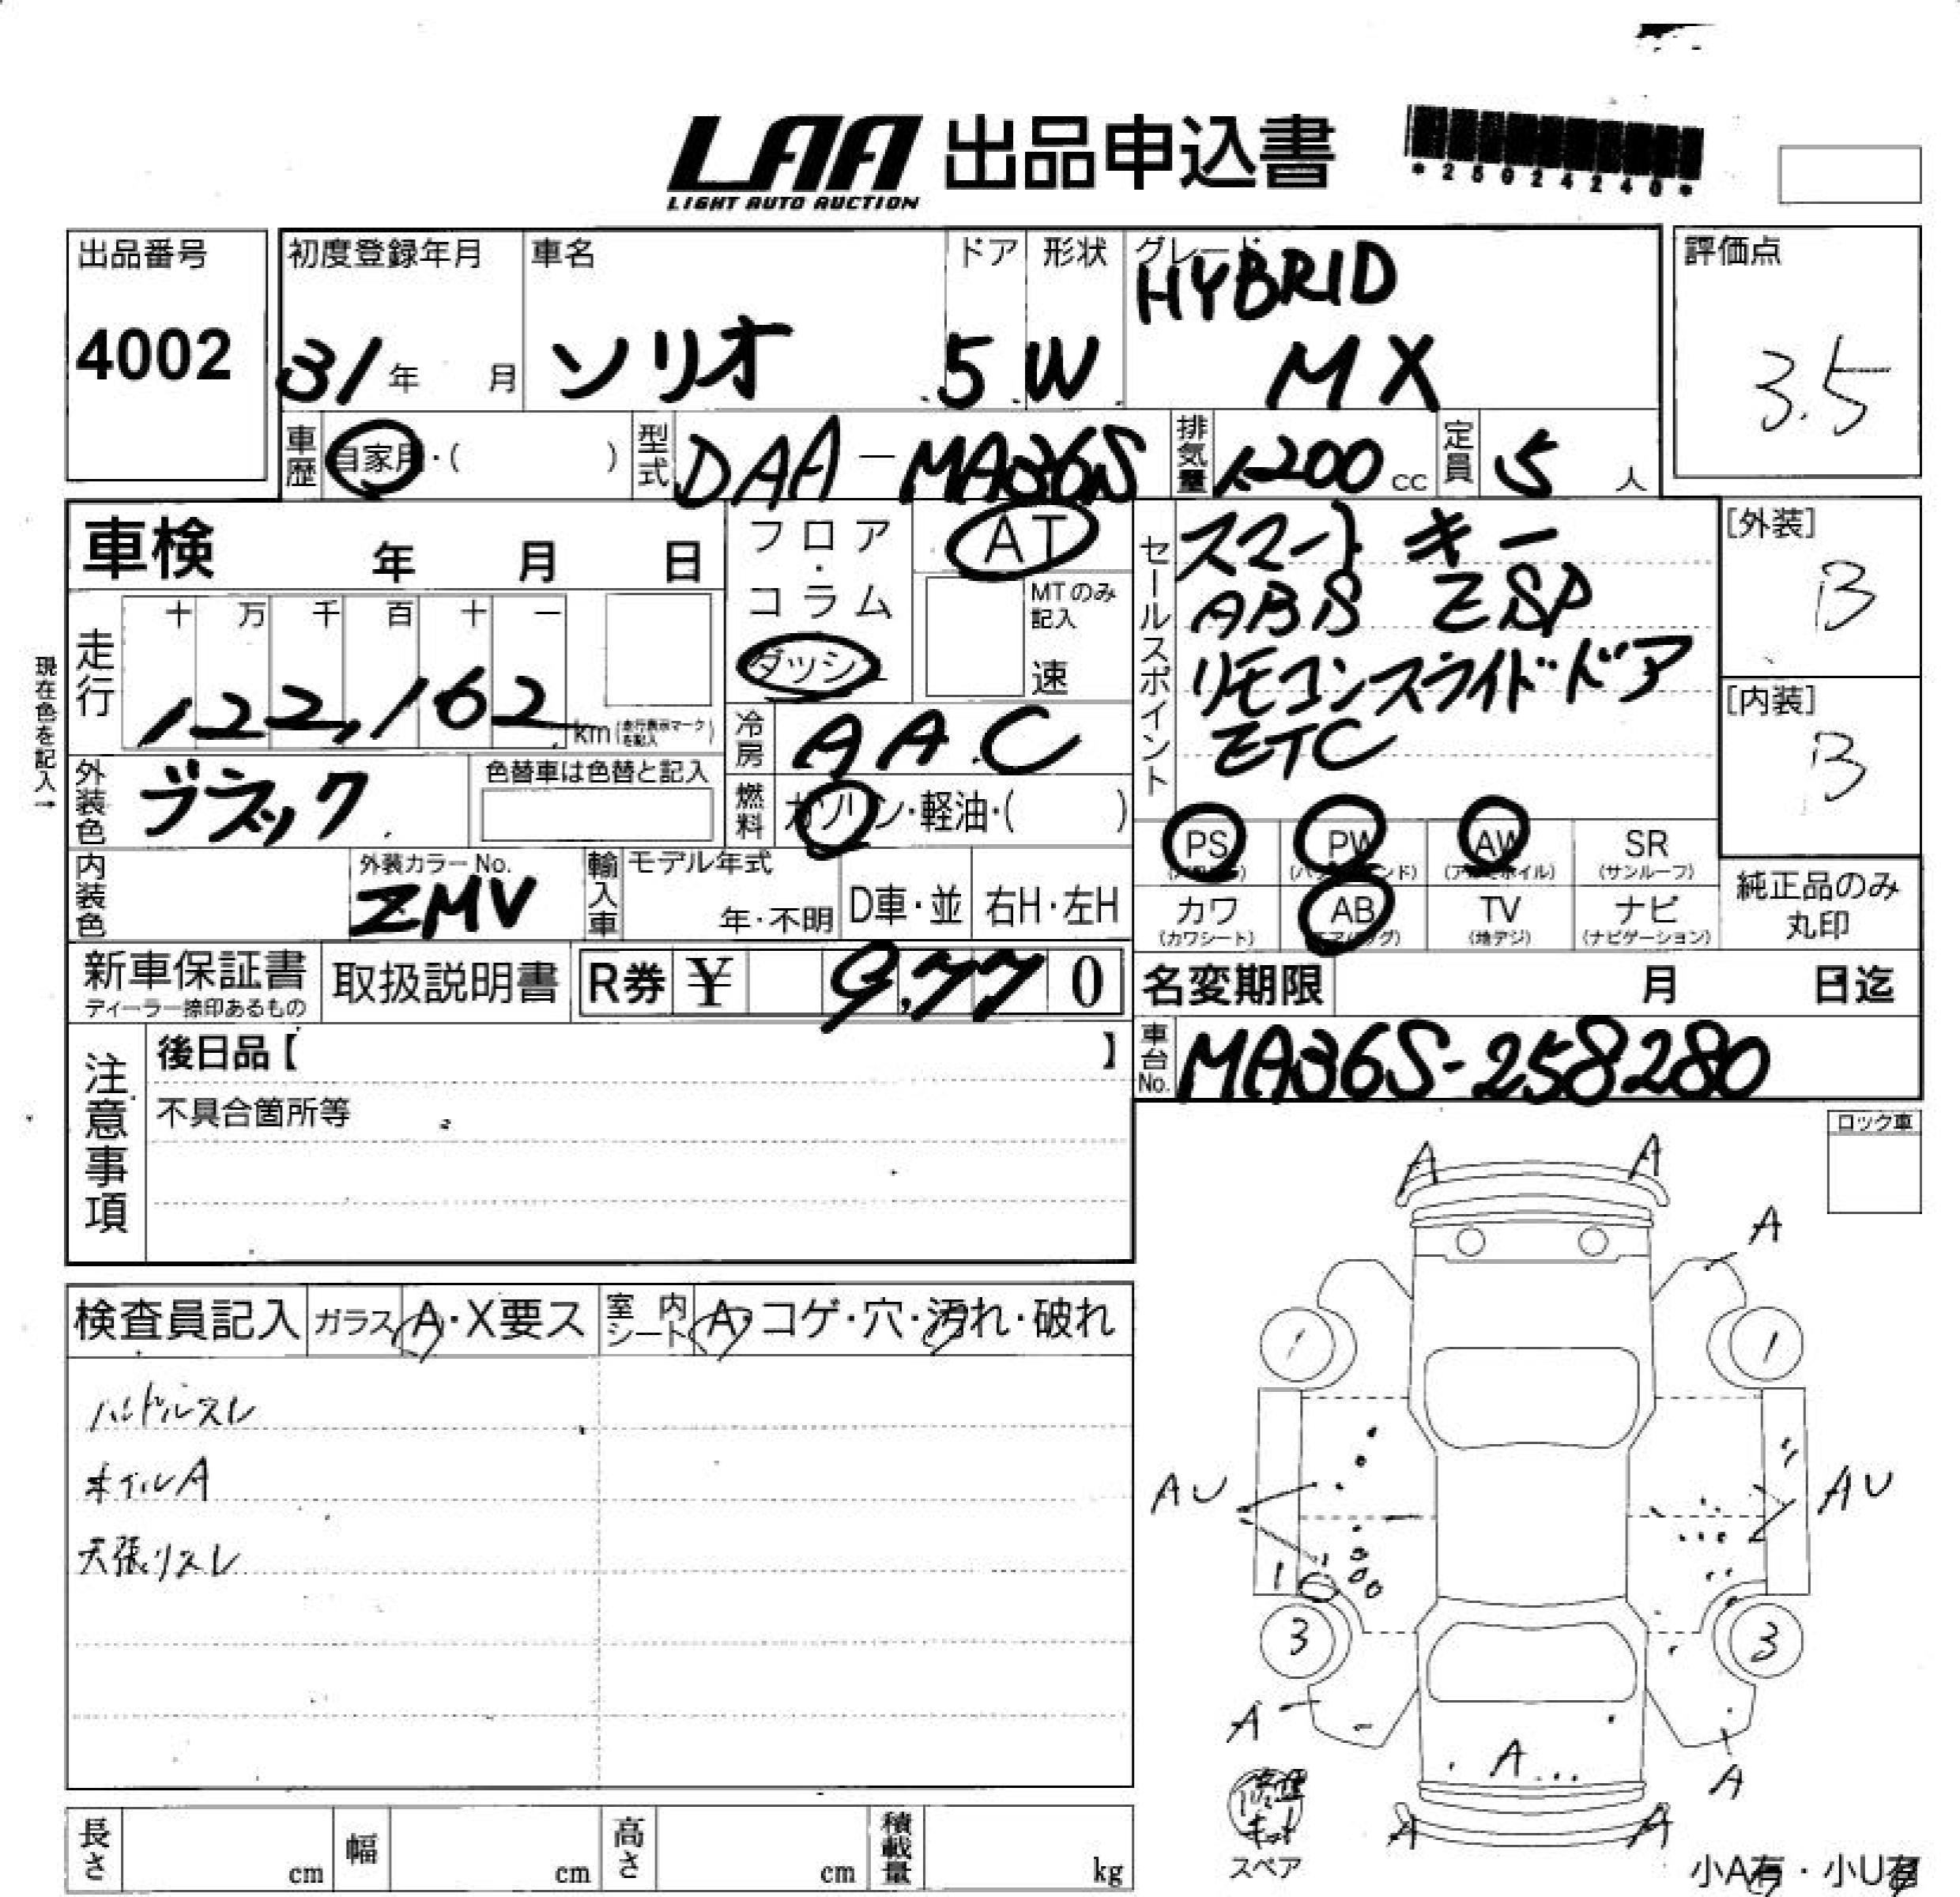 LAA 出品申込書
LIGHT AUTO AUCTION
*25024240*
出品番号
4002
初度登録年月
31年 月
車名
ソリオ
ドア
5
形状
W
グレード
HYBRID
MX
評価点
3.5
車歴 自家用・( )
型式 DAA-MA36S
排気量 1,200 cc
定員 5 人
車検 年 月 日
フロア・コラム
ダッシュ
AT
MTのみ記入
速
セールスポイント
スマートキー
ABS ESP
リモコンスライドドア
ETC
[外装]
B
[内装]
B
現在色を記入→
走行
十 万 千 百 十 一
122,162 km (走行表示マークを記入)
冷房 AAC
外装色 ブラック
色替車は色替と記入
燃料 ガソリン・軽油・( )
PS PW AW SR
(パワステ) (パワーウインド) (アルミホイル) (サンルーフ)
カワ AB TV ナビ
(カワシート) (エアバッグ) (地デジ) (ナビゲーション)
純正品のみ
丸印
内装色
外装カラーNo.
ZMV
輸入車
モデル年式
年・不明
D車・並
右H・左H
新車保証書
ディーラー捺印あるもの
取扱説明書
R券 ¥ 9,770
名変期限 月 日迄
車台No. MA36S-258280
注意事項
後日品【 】
不具合箇所等
ロック車
検査員記入
ガラス A・X要ス
室内シート A・コゲ・穴・汚れ・破れ
ハンドルスレ
ホイルA
天張リスレ
A A
A
1 1
AU AU
1
3 3
A
A
A
A A
修理キット
スペア
小A有・小U有
長さ cm
幅 cm
高さ cm
積載量 kg